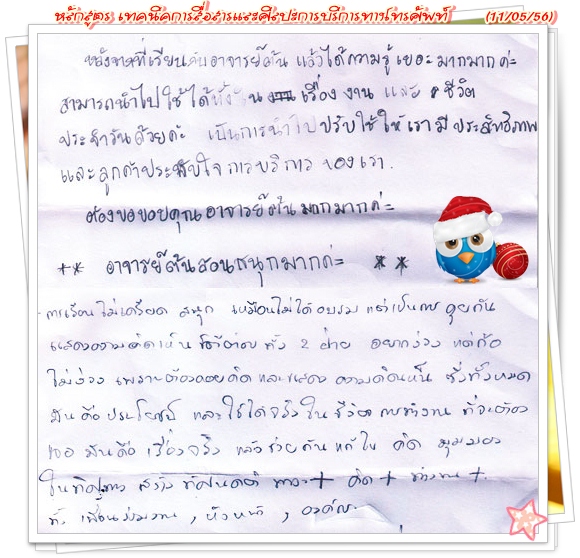 หลักสูตร เทคนิคการสื่อสารและศิลปะการบริการทางโทรศัพท์ (11/05/56)
หลังจากที่เรียนกับอาจารย์ต้น แล้วได้ความรู้ เยอะ มากมากค่ะ
สามารถนำไปใช้ได้ทั้งใน เรื่อง งาน และ ชีวิต
ประจำวันด้วยค่ะ เป็นการนำไปปรับใช้ให้เรามีประสิทธิภาพ
และลูกค้าประทับใจการบริการของเรา.
ต้องขอขอบคุณอาจารย์ต้น มากมากค่ะ
** อาจารย์ต้นสอนสนุกมากค่ะ **
การเรียนไม่เครียด สนุก เหมือนไม่ได้อบรม แต่เป็นการคุยกัน
แสดงความคิดเห็น โต้ตอบ ทั้ง 2 ฝ่าย อยากง่วง แต่ก็
ไม่ง่วง เพราะต้องคอยคิด และแสดงความคิดเห็น ซึ่งทั้งหมด
มันคือประโยชน์ และใช้ได้จริงในชีวิต การทำงาน ที่จะต้อง
เจอ มันคือ เรื่องจริง แล้วช่วยกันแก้ไข คิด มุมมอง
ในทิศทาง สร้าง ทัศนคติ ทาง + คิด + ทำงาน +
ทั้ง เพื่อนร่วมงาน, หัวหน้า, องค์กร